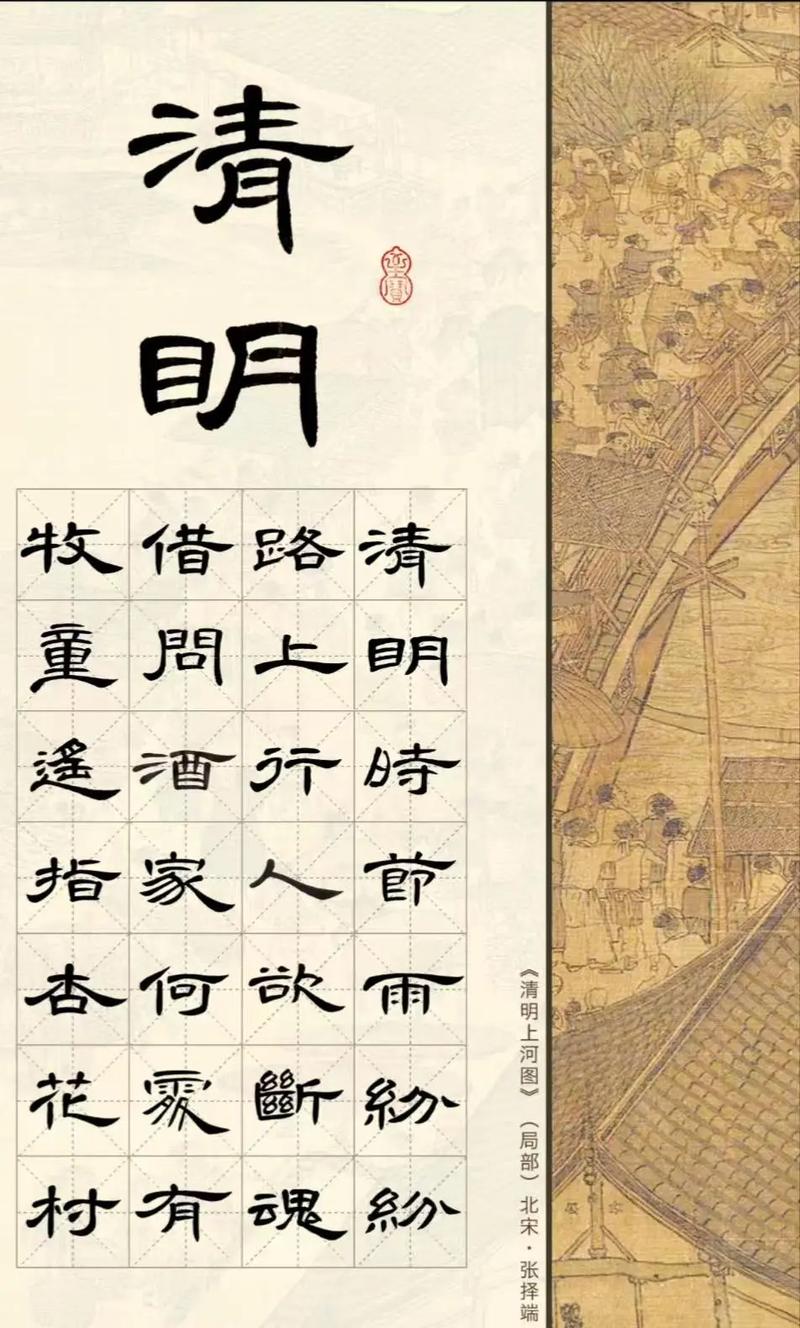 清明
清明時節雨紛紛
路上行人欲斷魂
借問酒家何處有
牧童遙指杏花村
《清明上河图》（局部）北宋·张择端